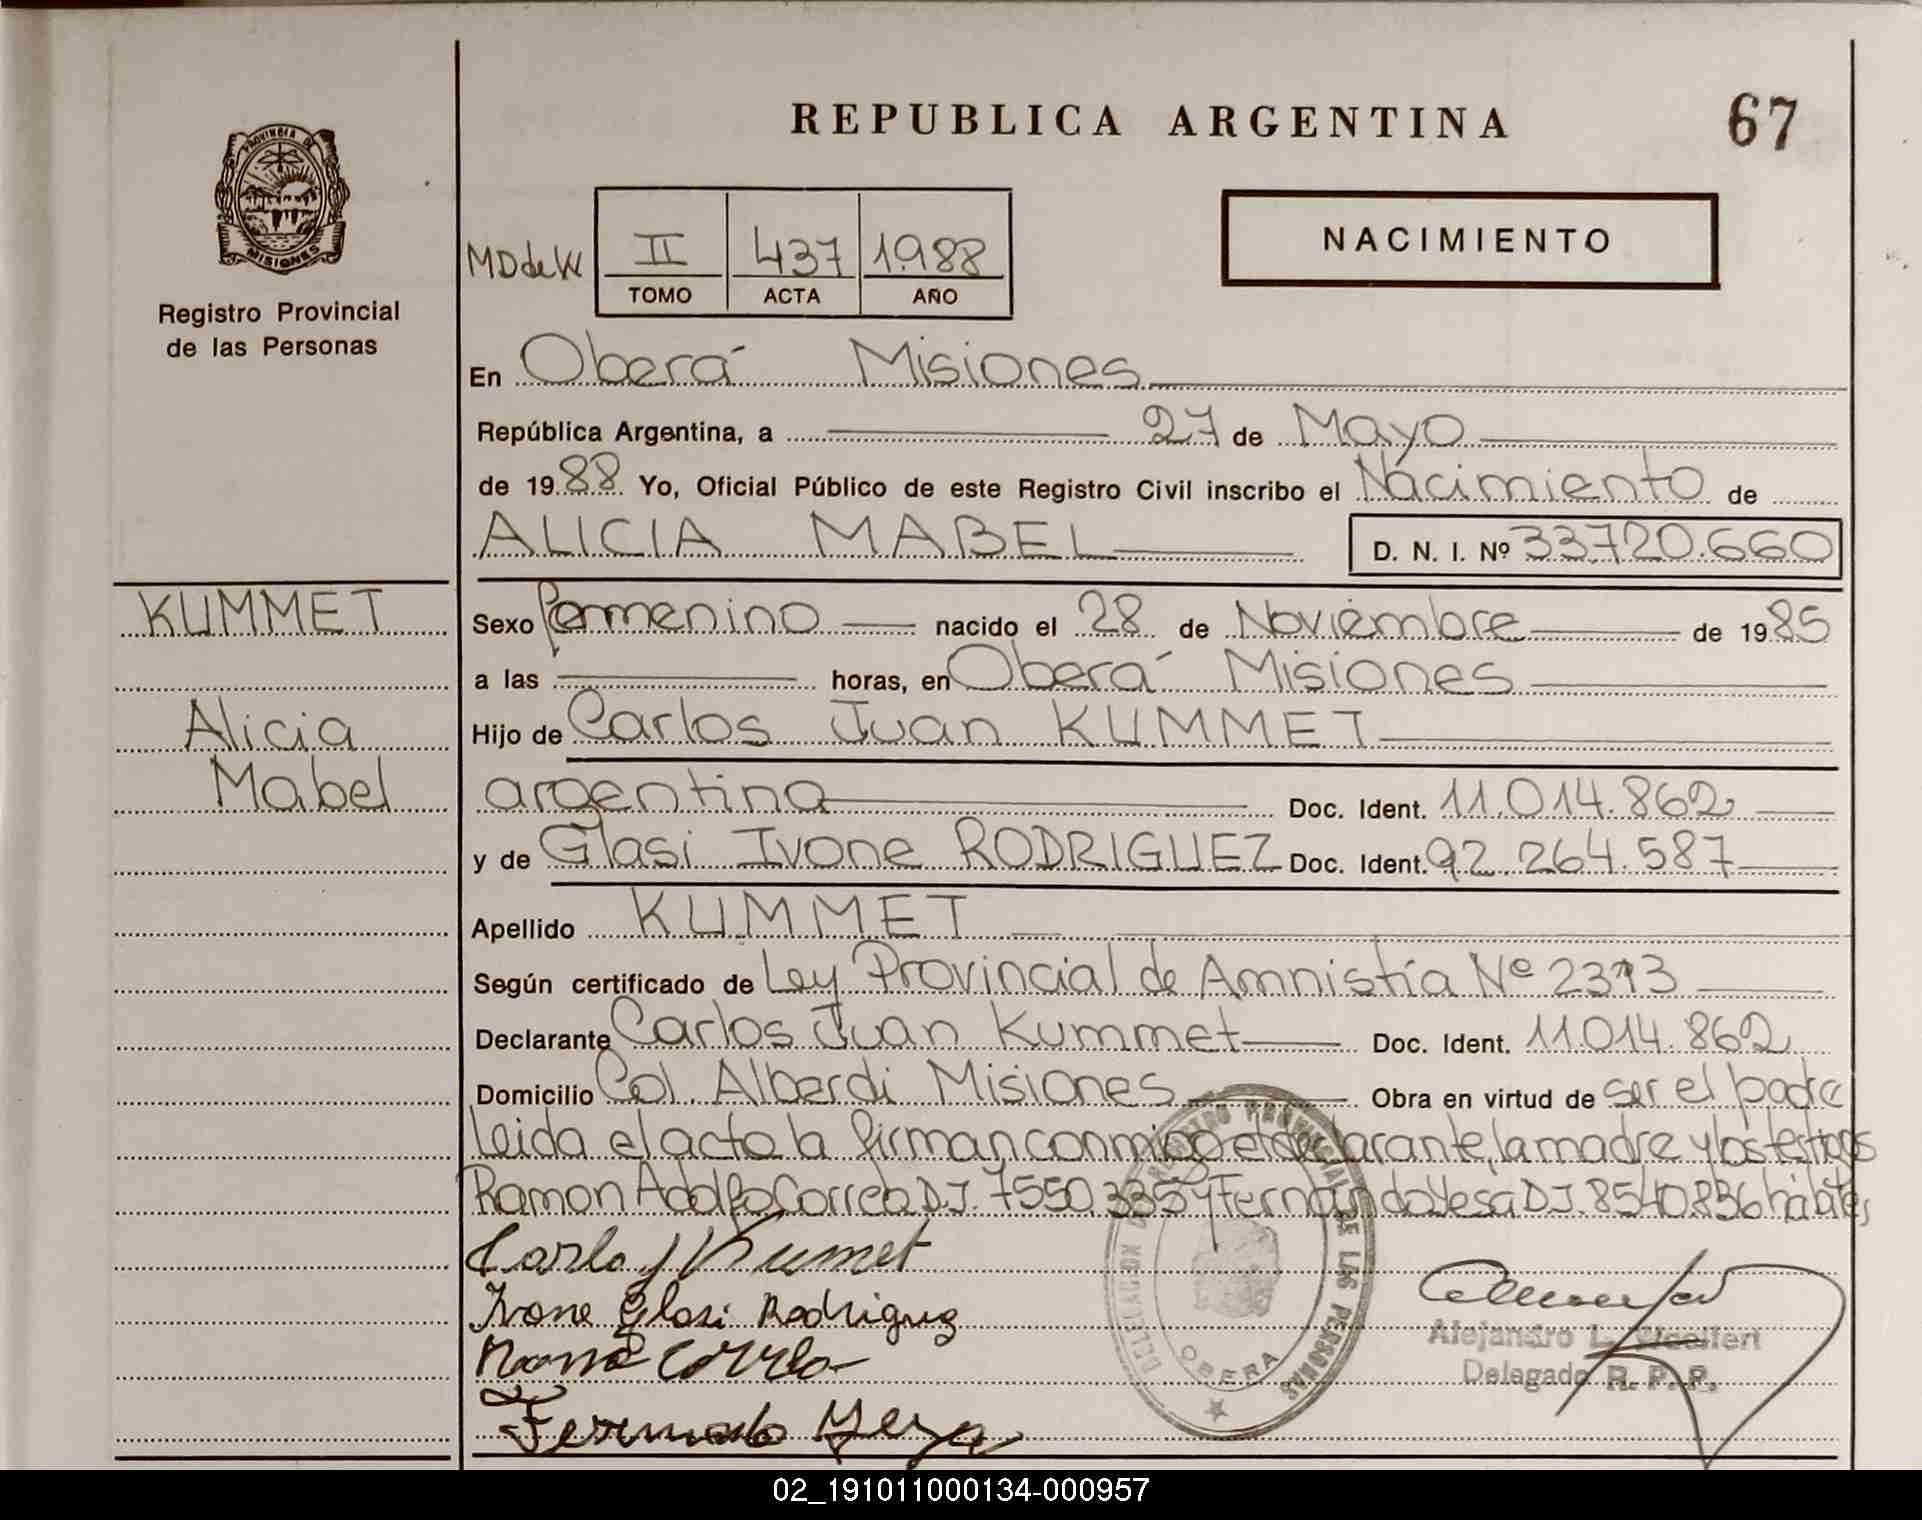 REPUBLICA ARGENTINA
67
PROVINCIA DE MISIONES
Registro Provincial
de las Personas
MDdeW
II 437 1988
TOMO ACTA AÑO
NACIMIENTO
En Oberá Misiones
República Argentina, a 27 de Mayo
de 1988 Yo, Oficial Público de este Registro Civil inscribo el Nacimiento de
ALICIA MABEL D. N. I. Nº 33.720.660
KUMMET
Alicia
Mabel
Sexo femenino nacido el 28 de Noviembre de 1985
a las horas, en Oberá Misiones
Hijo de Carlos Juan KUMMET
argentina Doc. Ident. 11.014.862
y de Glasi Ivone RODRIGUEZ Doc. Ident. 92.264.587
Apellido KUMMET
Según certificado de Ley Provincial de Amnistía Nº 2313
Declarante Carlos Juan Kummet Doc. Ident. 11.014.862
Domicilio Col. Alberdi Misiones Obra en virtud de ser el padre
leida el acta la firman conmigo el declarante, la madre y los testigos
Ramon Adolfo Correa D.I. 7550.335 y Fernando Yesa D.I. 8.540.836 hábiles
Carlo J Kumet
Ivone Glasi Rodriguez
Correa
Fernando Yeza
DELEGACION DEL REGISTRO PROVINCIAL DE LAS PERSONAS
OBERA
Alejandro L.
Delegado R. P. P.
02_191011000134-000957